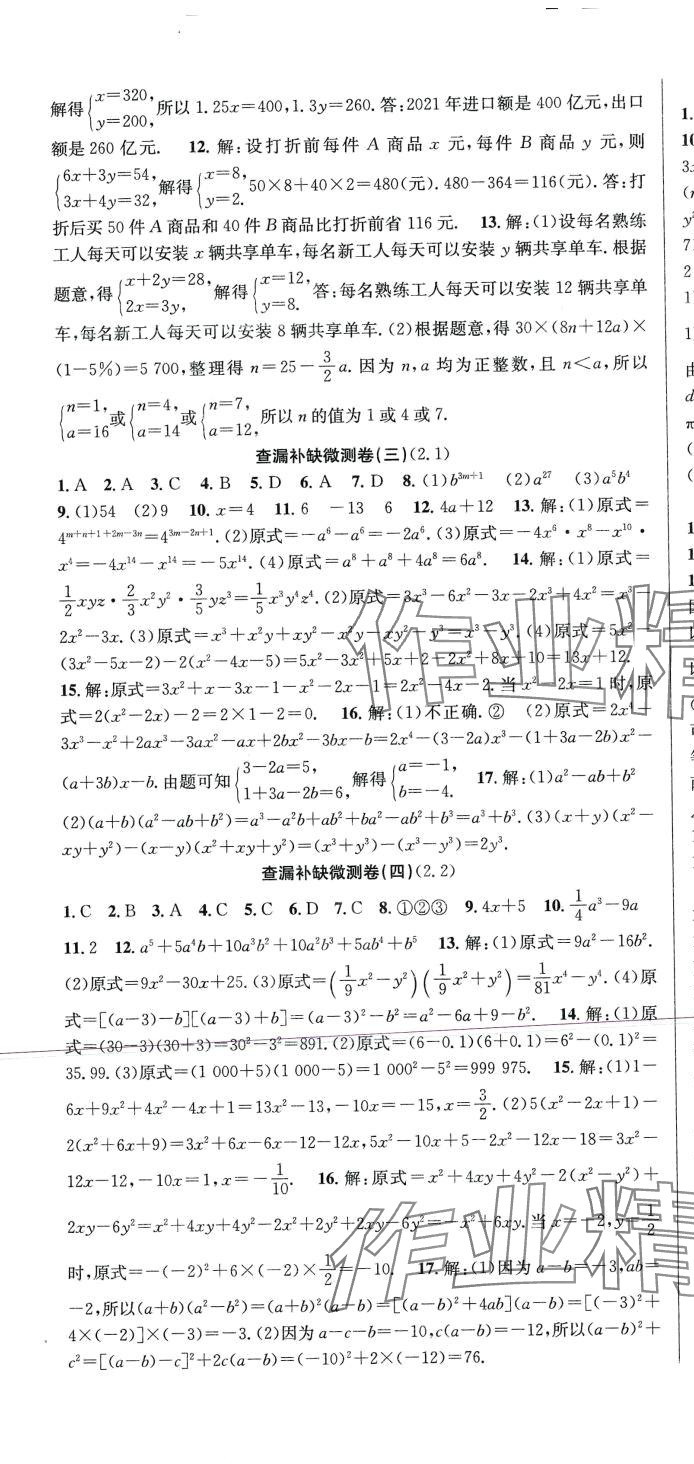 解得{x=320, y=200, 所以 1.25x=400,1.3y=260. 答:2021 年进口额是 400 亿元,出口
额是 260 亿元. 12. 解:设打折前每件 A 商品 x 元,每件 B 商品 y 元,则
{6x+3y=54, 3x+4y=32, 解得{x=8, y=2. 50×8+40×2=480(元). 480-364=116(元). 答:打
折后买 50 件 A 商品和 40 件 B 商品比打折前省 116 元. 13. 解:(1)设每名熟练
工人每天可以安装 x 辆共享单车,每名新工人每天可以安装 y 辆共享单车. 根据
题意,得{x+2y=28, 2x=3y, 解得{x=12, y=8. 答:每名熟练工人每天可以安装 12 辆共享单
车,每名新工人每天可以安装 8 辆共享单车. (2)根据题意,得 30×(8n+12a)×
(1-5%)=5 700,整理得 n=25-3/2a. 因为 n,a 均为正整数,且 n<a,所以
{n=1, a=16 或{n=4, a=14 或{n=7, a=12, 所以 n 的值为 1 或 4 或 7.
查漏补缺微测卷(三)(2.1)
1. A 2. A 3. C 4. B 5. D 6. A 7. D 8. (1)b³ᵐ⁺¹ (2)a²⁷ (3)a⁵b⁴
9. (1)54 (2)9 10. x=4 11. 6 -13 6 12. 4a+12 13. 解:(1)原式=
4ᵐ⁺ⁿ⁺¹⁺²ᵐ⁻³ⁿ=4³ᵐ⁻²ⁿ⁺¹. (2)原式=-a⁶-a⁶=-2a⁶. (3)原式=-4x⁶·x⁸-x¹⁰·
x⁴=-4x¹⁴-x¹⁴=-5x¹⁴. (4)原式=a⁸+a⁸+4a⁸=6a⁸. 14. 解:(1)原式=
1/2xyz·2/3x²y²·3/5yz³=1/5x³y⁴z⁴. (2)原式=3x³-6x²-3x-2x³+4x²=x³-
2x²-3x. (3)原式=x³+x²y+xy²-x²y-xy²-y³=x³-y³. (4)原式=5x²-
(3x²-5x-2)-2(x²-4x-5)=5x²-3x²+5x+2-2x²+8x+10=13x+12.
15. 解:原式=3x²+x-3x-1-x²-2x-1=2x²-4x-2. 当 x²-2x=1 时,原
式=2(x²-2x)-2=2×1-2=0. 16. 解:(1)不正确. ② (2)原式=2x⁴-
3x³-x²+2ax³-3ax²-ax+2bx²-3bx-b=2x⁴-(3-2a)x³-(1+3a-2b)x²-
(a+3b)x-b. 由题可知{3-2a=5, 1+3a-2b=6, 解得{a=-1, b=-4. 17. 解:(1)a²-ab+b²
(2)(a+b)(a²-ab+b²)=a³-a²b+ab²+ba²-ab²+b³=a³+b³. (3)(x+y)(x²-
xy+y²)-(x-y)(x²+xy+y²)=(x³+y³)-(x³-y³)=2y³.
查漏补缺微测卷(四)(2.2)
1. C 2. B 3. A 4. C 5. C 6. D 7. C 8. ①②③ 9. 4x+5 10. 1/4a³-9a
11. 2 12. a⁵+5a⁴b+10a³b²+10a²b³+5ab⁴+b⁵ 13. 解:(1)原式=9a²-16b².
(2)原式=9x²-30x+25. (3)原式=(1/9x²-y²)(1/9x²+y²)=1/81x⁴-y⁴. (4)原
式=[(a-3)-b][(a-3)+b]=(a-3)²-b²=a²-6a+9-b². 14. 解:(1)原
式=(30-3)(30+3)=30²-3²=891. (2)原式=(6-0.1)(6+0.1)=6²-(0.1)²=
35.99. (3)原式=(1 000+5)(1 000-5)=1 000²-5²=999 975. 15. 解:(1)1-
6x+9x²+4x²-4x+1=13x²-13,-10x=-15,x=3/2. (2)5(x²-2x+1)-
2(x²+6x+9)=3x²+6x-6x-12-12x,5x²-10x+5-2x²-12x-18=3x²-
12x-12,-10x=1,x=-1/10. 16. 解:原式=x²+4xy+4y²-2(x²-y²)+
2xy-6y²=x²+4xy+4y²-2x²+2y²+2xy-6y²=-x²+6xy. 当 x=-2,y=1/2
时,原式=-(-2)²+6×(-2)×1/2=-10. 17. 解:(1)因为 a-b=-3,ab=
-2,所以(a+b)(a²-b²)=(a+b)²(a-b)=[(a-b)²+4ab](a-b)=[(-3)²+
4×(-2)]×(-3)=-3. (2)因为 a-c-b=-10,c(a-b)=-12,所以(a-b)²+
c²=[(a-b)-c]²+2c(a-b)=(-10)²+2×(-12)=76.
作业精
作业精